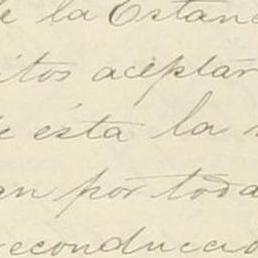 de la Estanc
itos aceptar
de ésta la
an por toda
reconducid